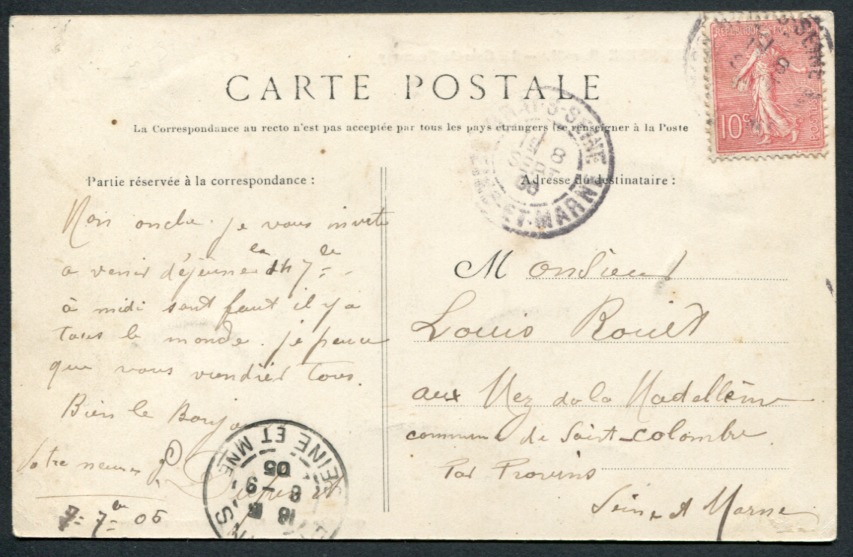 CARTE POSTALE
La Correspondance au recto n'est pas acceptée par tous les pays étrangers (se renseigner à la Poste
Partie réservée à la correspondance :
Mon oncle. je vous invite
a venir déjeuner le 7
à midi sans faut il y a
tous le monde. je pense
que vous viendrier tous.
Bien le Bonjo
Votre neveu
7bre 05
Adresse du destinataire :
Monsieur
Louis Rouet
aux Mez de la Madelleine
commune de Saint-Colombe
Par Provins
Seine et Marne
10c
SEINE
SEINE-ET-MARNE
SEINE ET MNE
8 -9
05